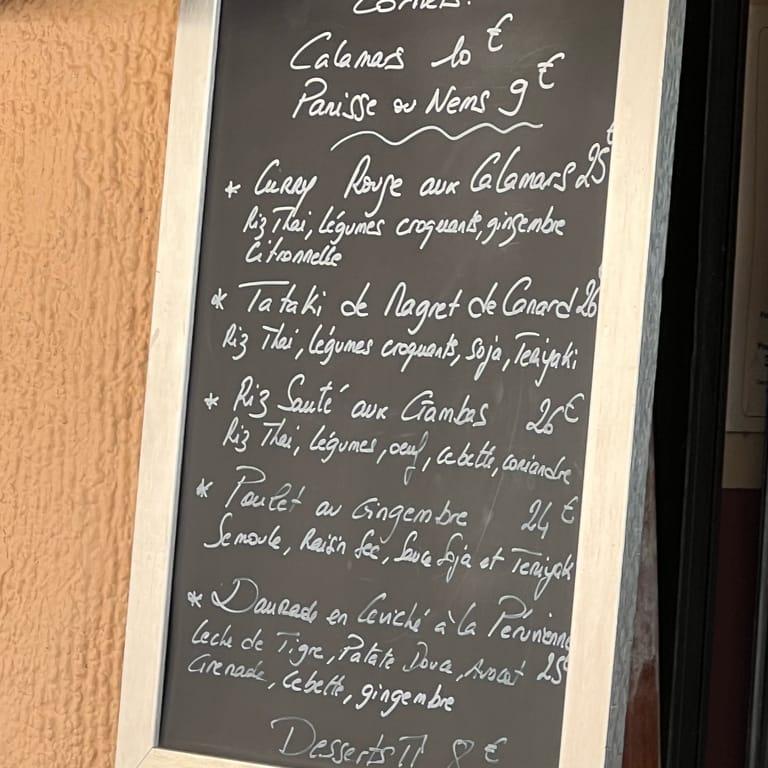 Cornets:
Calamars 10 €
Panisse ou Nems 9 €
* Curry Rouge aux Calamars 25 €
Riz Thai, légumes croquants, gingembre
Citronnelle
* Tataki de Magret de Canard 26
Riz Thai, légumes croquants, soja, Teriyaki
* Riz Sauté aux Gambas 26 €
Riz Thai, légumes, oeuf, cebette, coriandre
* Poulet au Gingembre 24 €
Semoule, Raisin Sec, Sauce Soja et Teriyaki
* Daurade en Ceviché à la Péruvienne
Leche de Tigre, Patate Douce, Avocat 25
Grenade, Cebette, gingembre
Desserts 8 €